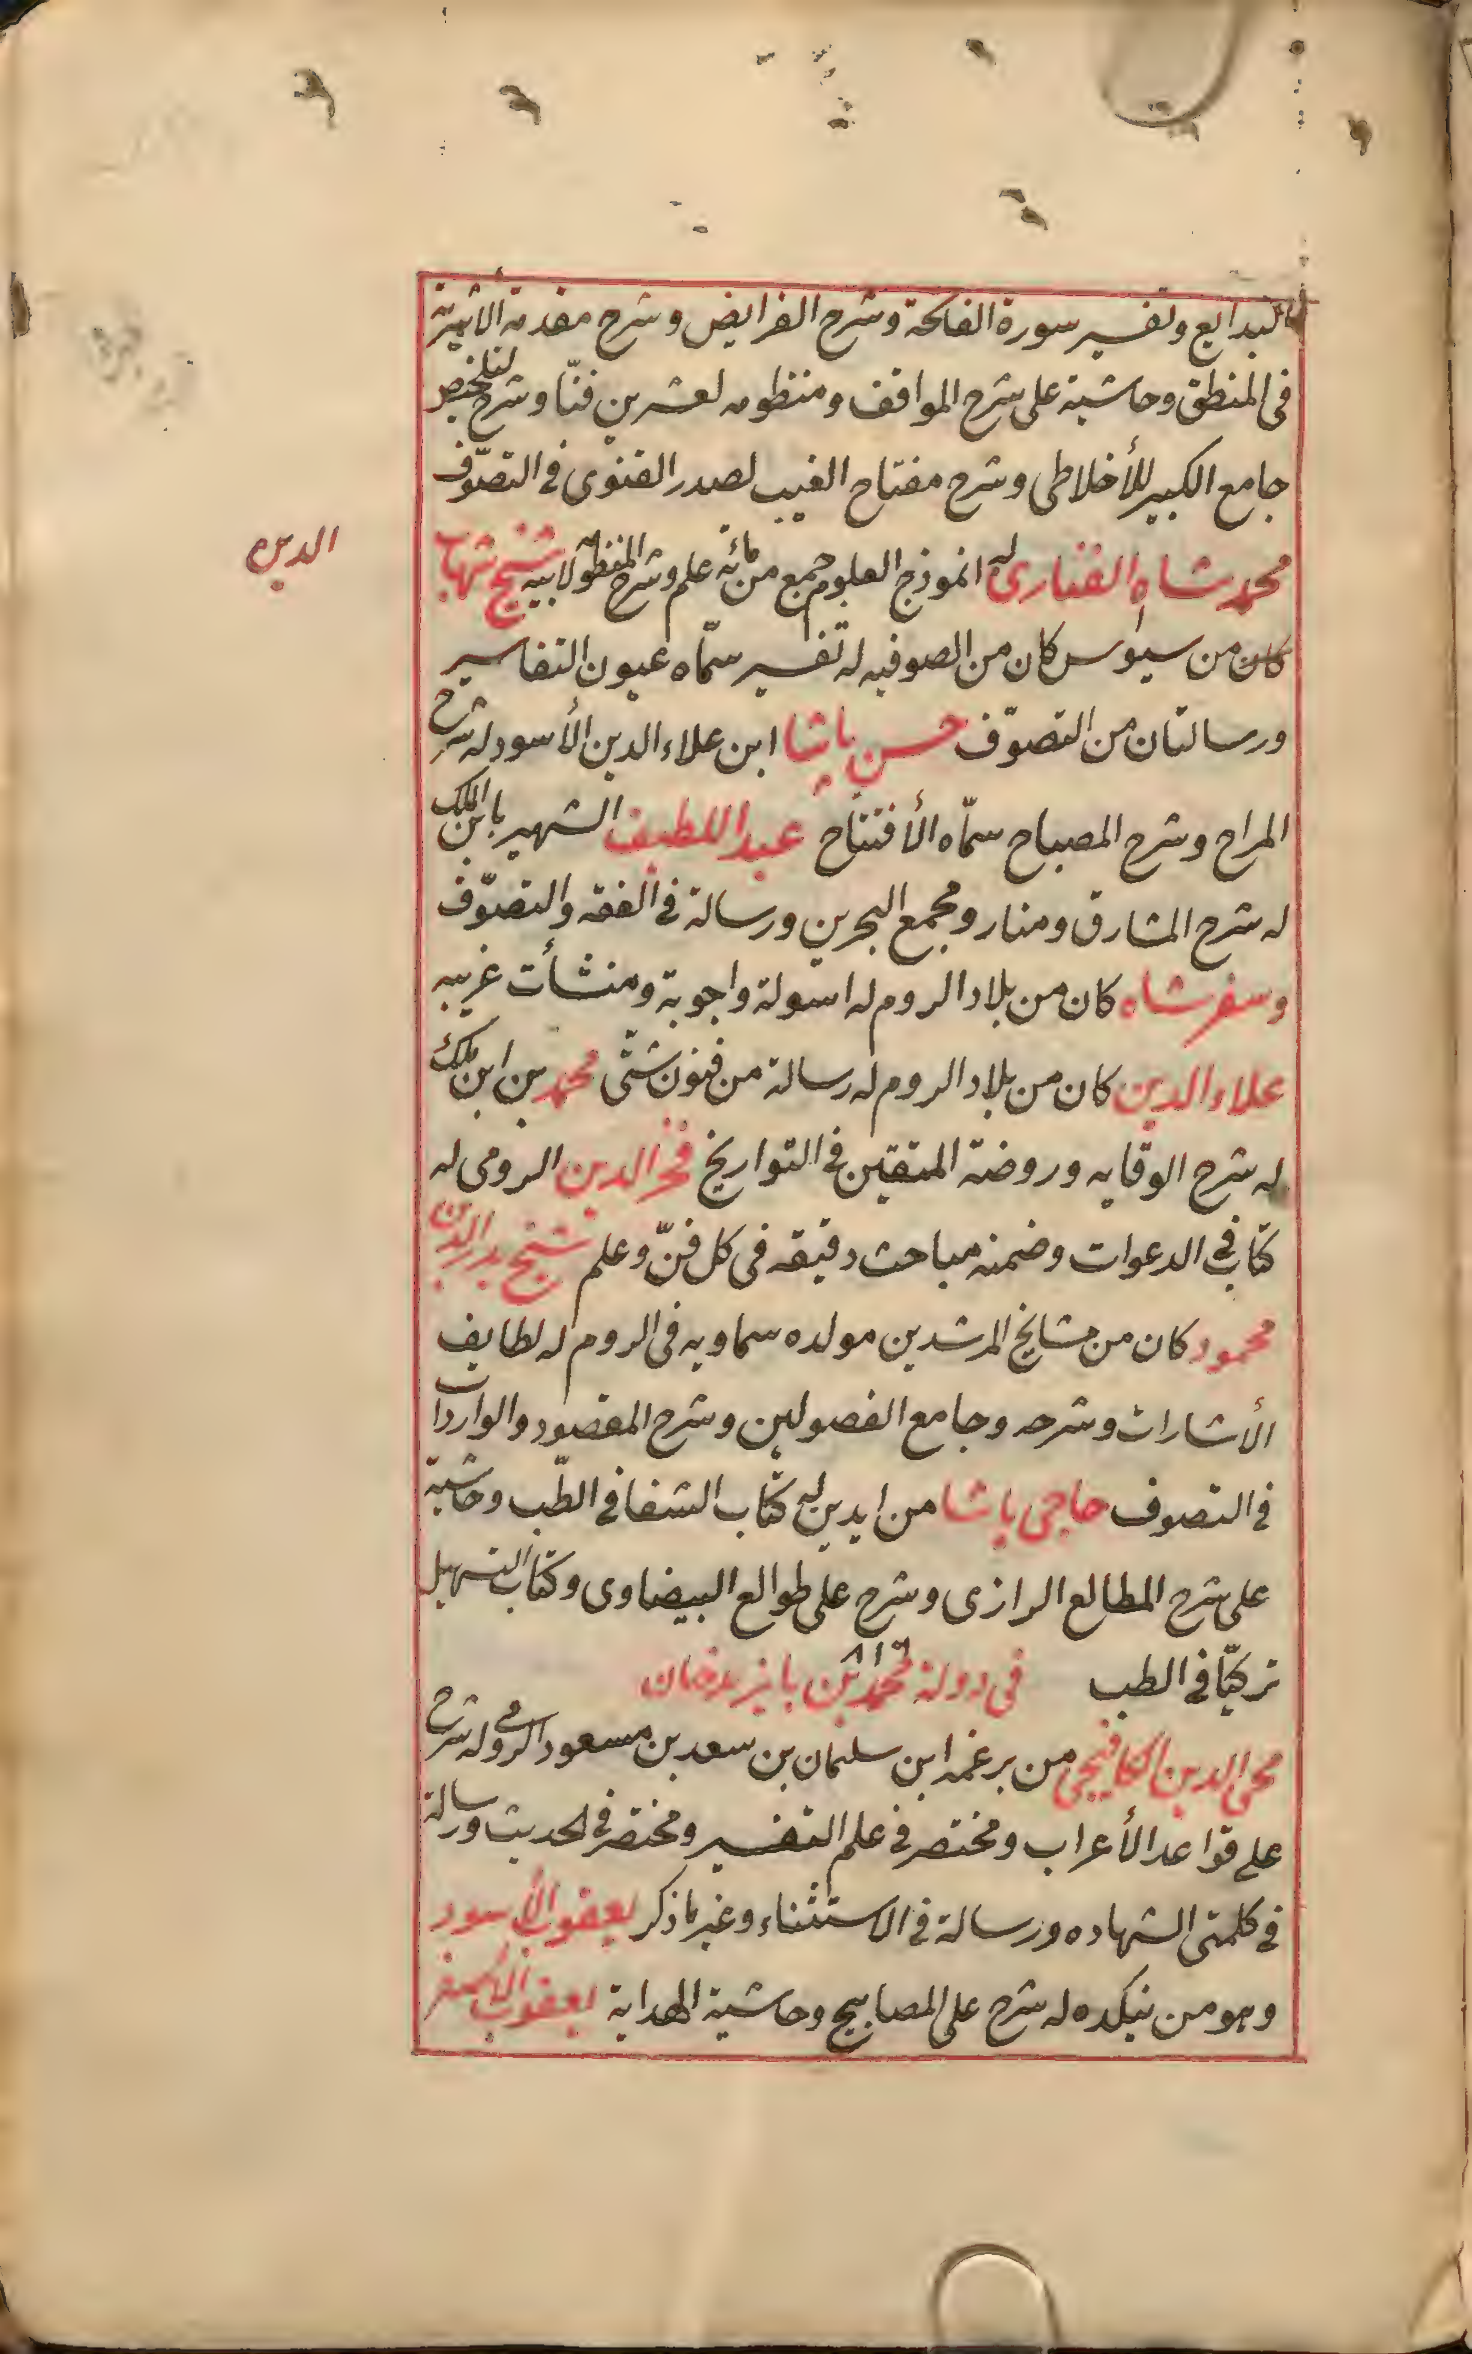 البدايع وتفسير سورة الفاتحة وشرح الفرايض وشرح مقدمة الاثيرية
فى المنطق وحاشية على شرح المواقف ومنظومه لعشرين فنّا وشرح لتلخيص
جامع الكبير للأخلاطى وشرح مفتاح الغيب لصدر القنوى فى التصوّف
محمد شاه الفنارى له انموذج العلوم جمع من مائة علم وشرح المنظومة لابيه شيخ شهاب
الدين
كان من سيواس كان من الصوفيه له تفسير سمّاه عيون التفاسير
ورسالتان من التصوّف حسن پاشا ابن علاء الدين الأسود له شرح
المراح وشرح المصباح سمّاه الأفتتاح عبد اللطيف الشهير بابن الملك
له شرح المشارق ومنار ومجمع البحرين ورسالة فى الفقه والتصوّف
وسفرشاه كان من بلاد الروم له اسولة واجوبة ومنشأت غريبه
علاء الدين كان من بلاد الروم له رسالة من فنون شتّى محمد بن ابن ملك
له شرح الوقايه وروضة المتقين فى التواريخ فخر الدين الرومى له
كتاب فى الدعوات وضمنه مباحث دقيقه فى كل فنّ وعلم شيخ بدر الدين
محمود كان من مشايخ المرشدين مولده سماويه فى الروم له لطايف
الأشارات وشرحه وجامع الفصولين وشرح المقصود والواردات
فى التصوف حاجى پاشا من ايدين له كتاب الشفا فى الطّب وحاشية
على شرح المطالع الرازى وشرح على طوالع البيضاوى وكتاب التسهيل
تركيّا فى الطب فى دولة محمد بن بايزيد خان
محى الدين الكافيجى من برغمه ابن سليمان بن سعد بن مسعود الرومى وله شرح
على قواعد الأعراب ومختصر فى علم التفسير ومختصر فى الحديث ورسالة
فى كلمتى الشهاده ورسالة فى الاستثناء وغير ما ذكر يعقوب الأسود
وهو من نيكده له شرح على المصابيح وحاشية الهداية يعقوب الأصفر